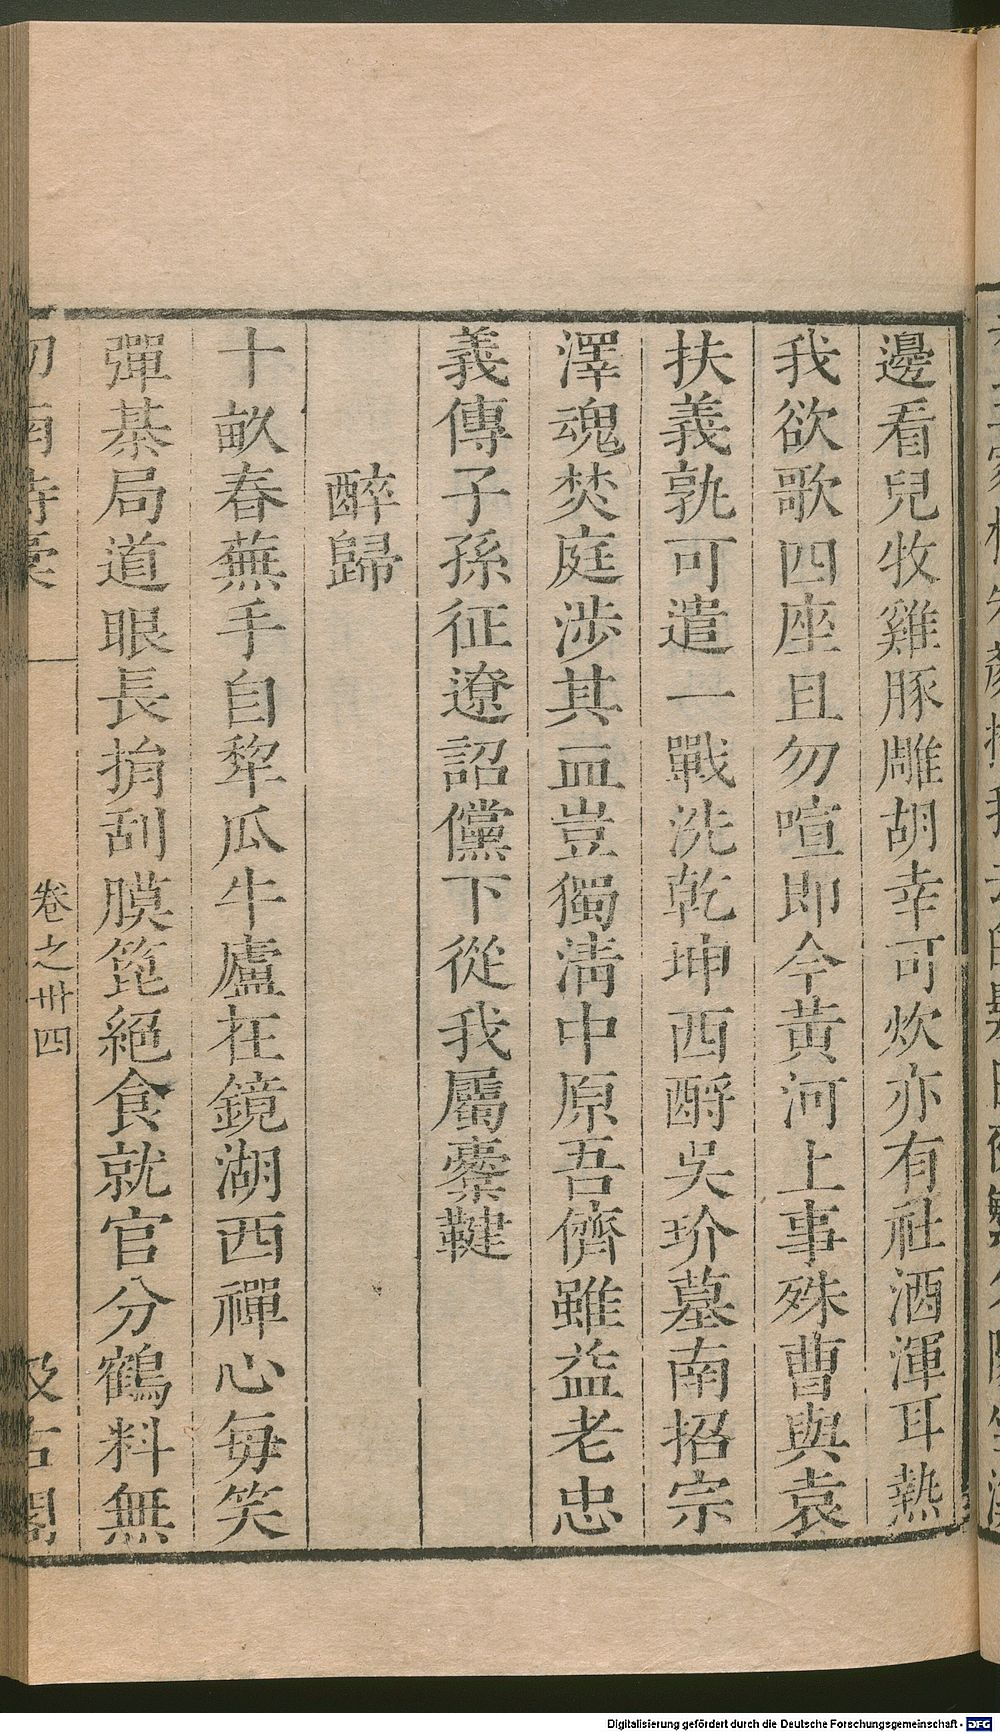 邊看兒牧雞豚雕胡幸可炊亦有社酒渾耳熱
我欲歌四座且勿喧即今黃河上事殊曹與袁
扶義孰可遣一戰洗乾坤西酹吳玠墓南招宗
澤魂焚庭涉其血豈獨淸中原吾儕雖益老忠
義傳子孫征遼詔儻下從我屬櫜鞬
醉歸
十畝春蕪手自犂瓜牛廬在鏡湖西禪心每笑
彈棊局道眼長捐刮膜篦絕食就官分鶴料無
劒南詩稾
卷之卅四
汲古閣
Digitalisierung gefördert durch die Deutsche Forschungsgemeinschaft - DFG